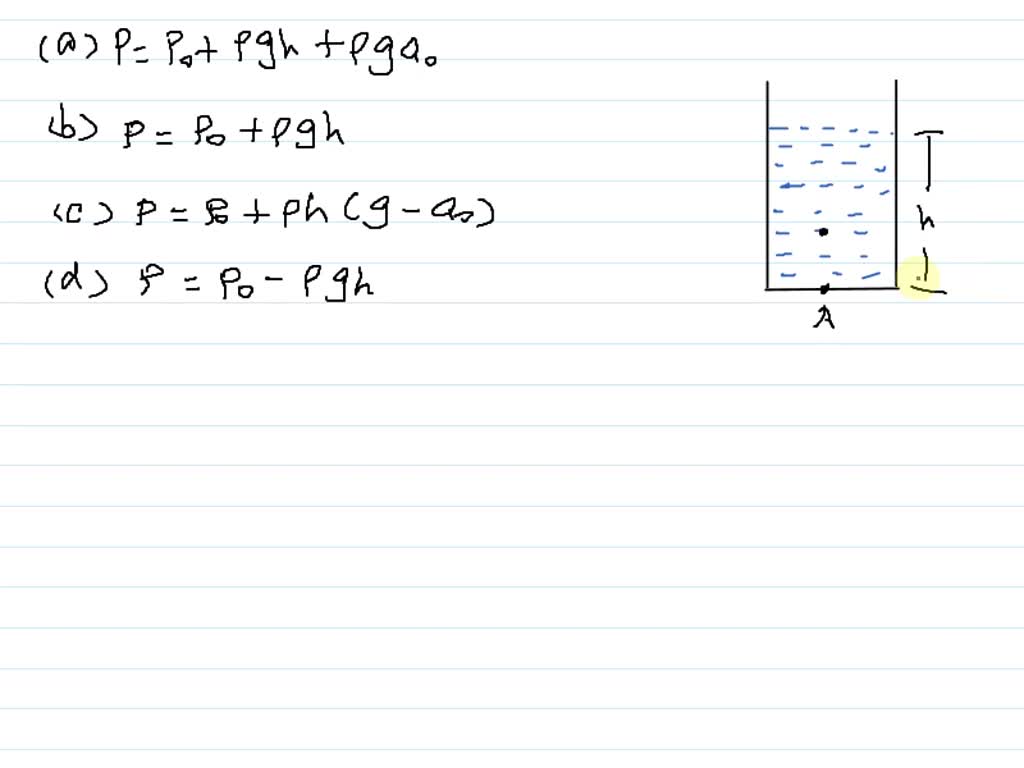 (a) P = P₀ + ρgh + ρga₀
(b) P = P₀ + ρgh
(c) P = P₀ + ρh (g - a₀)
(d) P = P₀ - ρgh
h
A